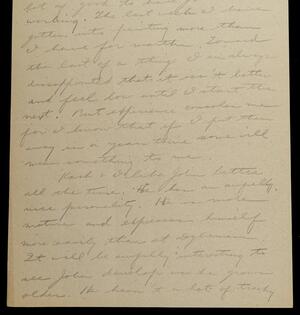 lot of good to have
working. The last week I have
gotten into painting more than
I have for months. Toward
the last of a thing I am always
disappointed that it isn't better
and feel low until I start the
next. But experience consoles me
for I know that if I put them
away in a year time some will
mean something to me.
Kash & I like John better
all the time. He has an awfully
nice personality. He is more
mature and expresses himself
more easily than at
It will be awfully interesting to
see John develop as he grows
older. He hasn't a lot of trashy